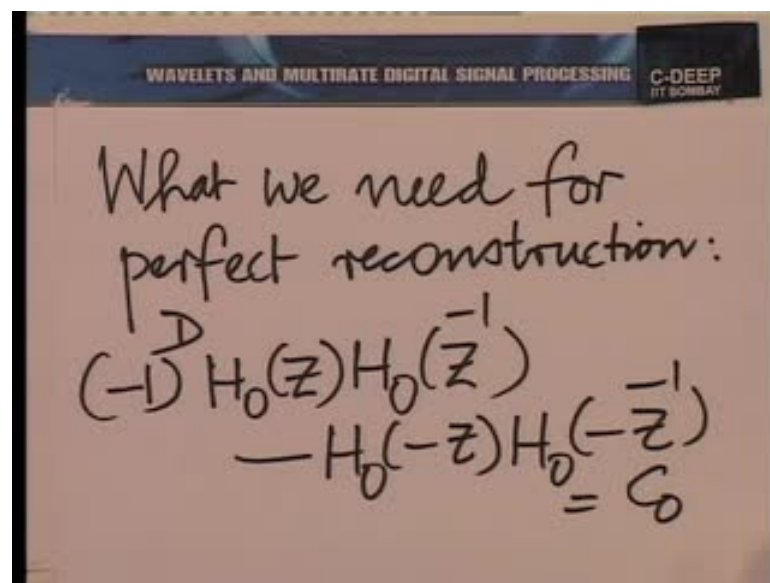 WAVELETS AND MULTIRATE DIGITAL SIGNAL PROCESSING
C-DEEP
IIT BOMBAY
What we need for
perfect reconstruction:
(-1)^D H₀(Z)H₀(Z⁻¹)
—H₀(-Z)H₀(-Z⁻¹)
= C₀